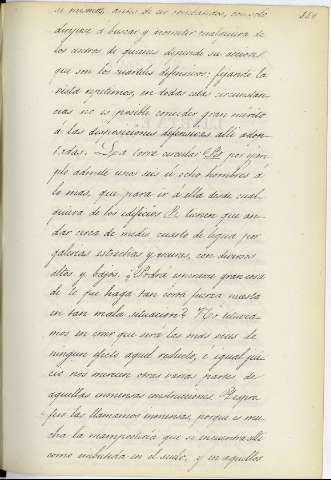 si mismos, antes de ser rodeados, con solo
dirijan á buscar y acometer cualquiera de
los centros de quienes depende su accion,
que son los cuarteles defensivos: fijando la
vista repetimos, en todas estas circunstan
cias no es posible conceder gran merito
á las disposiciones defensivas alli adop-
tadas. La torre circular P3 por ejem
plo admite unos seis ú ocho hombres á
lo mas, que para ir á ella desde cual
quiera de los edificios P. tienen que an
dar cerca de medio cuarto de legua por
galerias estrechas y muros, con diversos
altos y bajos. ¿Podrá esperarse gran cosa
de lo que haga tan corta fuerza puesta
en tan mala situacion? No titubea
mos en creer que será las mas veces de
ningun efecto aquel reducto, é igual jui
cio nos merecen otras varias partes de
aquellas inmensas construcciones
las llamamos inmensas, porque es mu
cha la mamposteria que se encuentra alli
como embutida en el suelo, y en aquellos